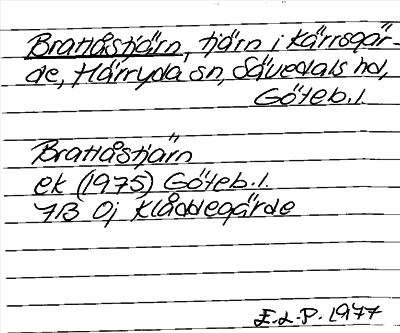 Bratlåstjärn, tjärn i Kärrsgär-
de, Härryda sn, Sävedals hd,
Göteb.l.
Bratlåstjärn
ek (1975) Göteb.l.
7B 0j Klåddegärde
E.L.P. 1977